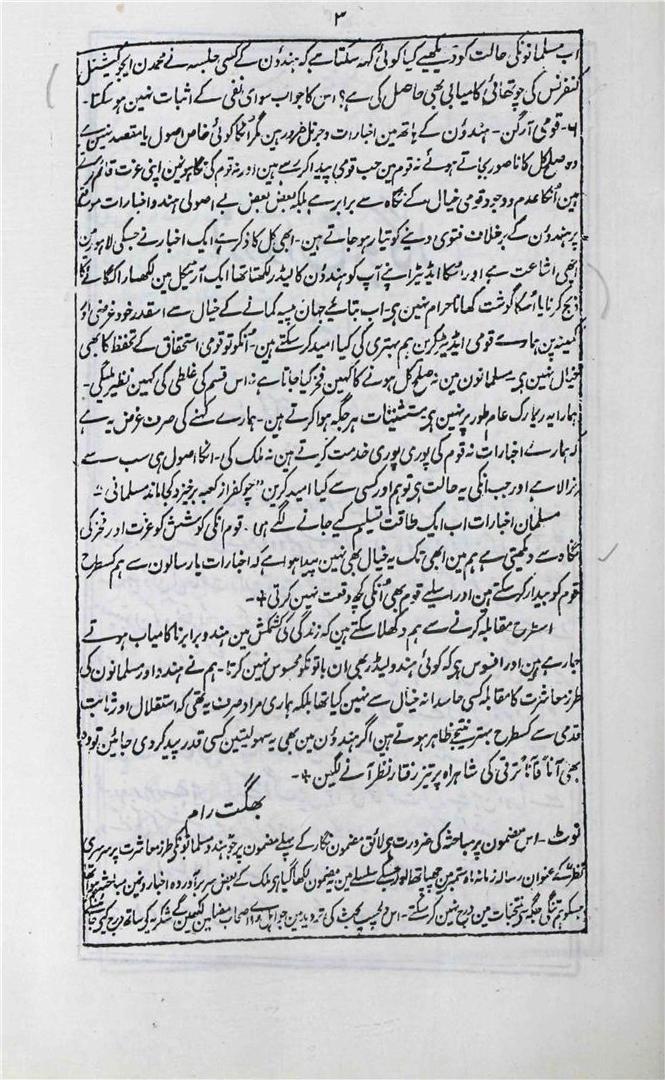 ۳
اب مسلمانونکی حالت کو دیکھیے کیا کوئی کہہ سکتا ہے کہ ہندؤن کے کسی جلسہ نے محمڈن ایجوکیشنل
کنفرنس کی چوتھائی کامیابی بھی حاصل کی ہے؟ اس کا جواب سوای نفی کے اثبات نہین ہو سکتا۔
۶۔ قومی آرگن۔ ہندؤن کے ہاتھ مین اخبارات و جرنل ضرور ہین مگر انکا کوئی خاص اصول یا مقصد نہین ہے
وہ صلح کل کا ناصور بجاتے ہوئے نہ قوم مین حب قومی پیدا کر رہے ہین اور نہ قوم کی نگاہونمین اپنی عزت قائم کر رہے
ہین اُنکا عدم و وجود قومی خیال کے نگاہ سے برابر ہے بلکہ بعض بعض بے اصولی ہندو اخبارات موقع
پر ہندؤن کے برخلاف فتوی دینے کو تیار ہو جاتے ہین۔ ابھی کل کا ذکر ہے ایک اخبار نے جسکی لاہور مین
اچھی اشاعت ہے اور اسکا ایڈیٹر اپنے آپ کو ہندؤن کا لیڈر لکھتا تھا ایک آرٹیکل مین لکھا سارا کہ گائے کا
ذبح کرنا یا اُسکا گوشت کھانا حرام نہین ہی۔ اب بتائیے جہان پیسہ کمانے کے خیال سے اسقدر خود غرضی اور
کمینہ پن ہمارے قومی ایڈیٹر کرین ہم بہتری کی کیا امید کر سکتے ہین۔ اُنکو تو قومی استحقاق کے تحفظ کا بھی
خیال نہین ہی۔ مسلمانون مین نہ صلح کل ہونے کا کہین فخر کیا جاتا ہے نہ اس قسم کی غلطی کی کہین نظیر ملیگی۔
ہمارا یہ ریمارک عام طور پر نہین ہی مستثنیات ہر جگہ ہوا کرتے ہین۔ ہمارے کہنے کی صرف غرض یہ ہے
کہ ہمارے اخبارات نہ قوم کی پوری پوری خدمت کرتے ہین نہ ملک کی۔ انکا اصول ہی سب سے
نرالا ہے اور جب انکی یہ حالت ہی تو ہم اور کسی سے کیا امید کرین "چو کفر از کعبہ برخیزد کجا ماند مسلمانی"
مسلمان اخبارات اب ایک طاقت تسلیم کیے جانے لگے ہین۔ قوم انکی کوشش کو عزت اور فخر کی
نگاہ سے دیکھتی ہے ہم مین ابھی تک یہ خیال بھی نہین پیدا ہوا ہے کہ اخبارات یا رسالون سے ہم کسطرح
قوم کو بیدار کر سکتے ہین اور اسلیے قوم بھی اُنکی کچھ وقعت نہین کرتی ؎
اسطرح مقابلہ کرنے سے ہم دکھلا سکتے ہین کہ زندگی کی کشمکش مین ہندو برابر ناکامیاب ہوتے
جا رہے ہین اور افسوس ہی کہ کوئی ہندو لیڈر بھی ان باتونکو محسوس نہین کرتا۔ ہم نے ہندو اور مسلمانون کی
طرز معاشرت کا مقابلہ کسی حاسدانہ خیال سے نہین کیا تھا بلکہ ہماری مراد صرف یہ تھی کہ استقلال اور ثابت
قدمی سے کسطرح بہتر نتیجے ظاہر ہوتے ہین اگر ہندؤن مین بھی یہ سہولیتین کسی قدر پیدا کر دی جائین تو وہ
بھی آناً فاناً ترقی کی شاہراہ پر تیز رفتار نظر آنے لگین ؎
بھگت رام
نوٹ۔ اس مضمون پر مباحثہ کی ضرورت ہی لائق مضمون نگار کے پہلے مضمون پر جو ہندو و مسلمانونکی طرز معاشرت پر سرسری
نظر کے عنوان رسالہ زمانہ ماہ ستمبر مین چھپا تھا اور جسکے سلسلے مین یہ مضمون لکھا گیا ہی ملک کے بعض سربرآوردہ اخبارونمین مباحثہ ہوا تھا
جسکو ہم تنگی جگہ سے منتخبات مین درج نہین کر سکتے۔ اس دلچسپ بحث کی تردید مین جو اہل الرائے اصحاب مضامین لکھینگے شکریہ کے ساتھ درج کیے جائینگے